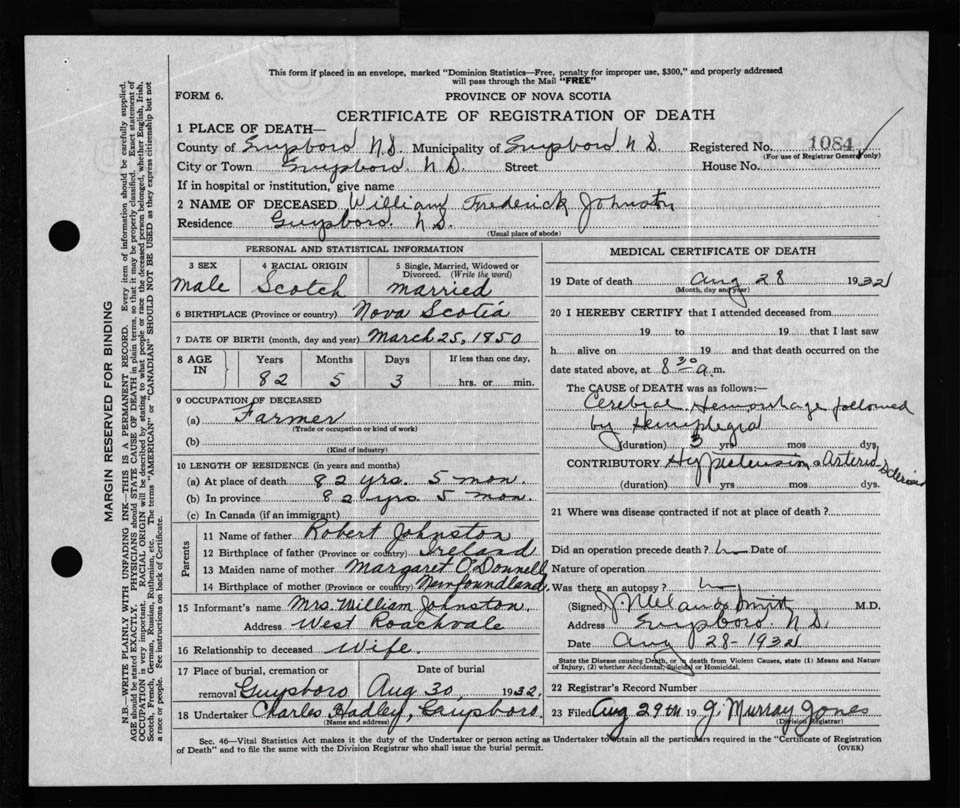 This form if placed in an envelope, marked "Dominion Statistics—Free, penalty for improper use, $300," and properly addressed
will pass through the Mail "FREE"
FORM 6.
PROVINCE OF NOVA SCOTIA
CERTIFICATE OF REGISTRATION OF DEATH
1 PLACE OF DEATH—
County of Guysboro N.S. Municipality of Guysboro. N S. Registered No. 1084
(For use of Registrar General only)
City or Town Guysboro. N.S. Street House No.
If in hospital or institution, give name
2 NAME OF DECEASED William Frederick Johnston
Residence Guysboro. N.S.
(Usual place of abode)
PERSONAL AND STATISTICAL INFORMATION
3 SEX 4 RACIAL ORIGIN 5 Single, Married, Widowed or
Divorced. (Write the word)
male Scotch married
6 BIRTHPLACE (Province or country) Nova Scotia
7 DATE OF BIRTH (month, day and year) March 25, 1850
8 AGE IN Years Months Days If less than one day,
82 5 3 hrs. or min.
9 OCCUPATION OF DECEASED
(a) Farmer
(Trade or occupation or kind of work)
(b)
(Kind of industry)
10 LENGTH OF RESIDENCE (in years and months)
(a) At place of death 82 yrs. 5 mon.
(b) In province 82 yrs 5 mon.
(c) In Canada (if an immigrant)
Parents
11 Name of father Robert Johnston
12 Birthplace of father (Province or country) Ireland
13 Maiden name of mother Margaret O'Donnell
14 Birthplace of mother (Province or country) Newfoundland
15 Informant's name Mrs. William Johnston
Address West Roachvale
16 Relationship to deceased Wife.
17 Place of burial, cremation or Date of burial
removal Guysboro Aug 30, 1932.
18 Undertaker Charles Hadley, Guysboro.
(Name and address)
MEDICAL CERTIFICATE OF DEATH
19 Date of death Aug 28 1932
(Month, day and year)
20 I HEREBY CERTIFY that I attended deceased from
19 to 19 that I last saw
h alive on 19 and that death occurred on the
date stated above, at 8 30 a.m.
The CAUSE of DEATH was as follows:—
Cerebral Hemorrhage followed
by Hemiplegia
(duration) 3 yrs mos dys.
CONTRIBUTORY Hypertension & Arterio Sclerosis
(duration) yrs mos. dys.
21 Where was disease contracted if not at place of death?
Did an operation precede death? Date of
Nature of operation
Was there an autopsy?
(Signed) Smith M.D.
Address Guysboro. N.S.
Date Aug 28 - 1932
State the Disease causing Death, or in death from Violent Causes, state (1) Means and Nature
of Injury, (2) whether Accidental, Suicidal or Homicidal.
22 Registrar's Record Number
23 Filed Aug 29th 19 J. Murray Jones
(Division Registrar)
Sec. 46—Vital Statistics Act makes it the duty of the Undertaker or person acting as Undertaker to obtain all the particulars required in the "Certificate of Registration
of Death" and to file the same with the Division Registrar who shall issue the burial permit.
(OVER)
MARGIN RESERVED FOR BINDING
N.B.—WRITE PLAINLY WITH UNFADING INK—THIS IS A PERMANENT RECORD. Every item of information should be carefully supplied.
AGE should be stated EXACTLY. PHYSICIANS should STATE CAUSE OF DEATH in plain terms, so that it may be properly classified. Exact statement of
OCCUPATION is very important. RACIAL ORIGIN will be described by stating to what people or race the deceased person belonged, whether English, Irish,
Scotch, French, German, Russian, Ruthenian, etc. The terms "AMERICAN" or "CANADIAN" SHOULD NOT BE USED as they express citizenship but not
a race or people. See instructions on back of Certificate.